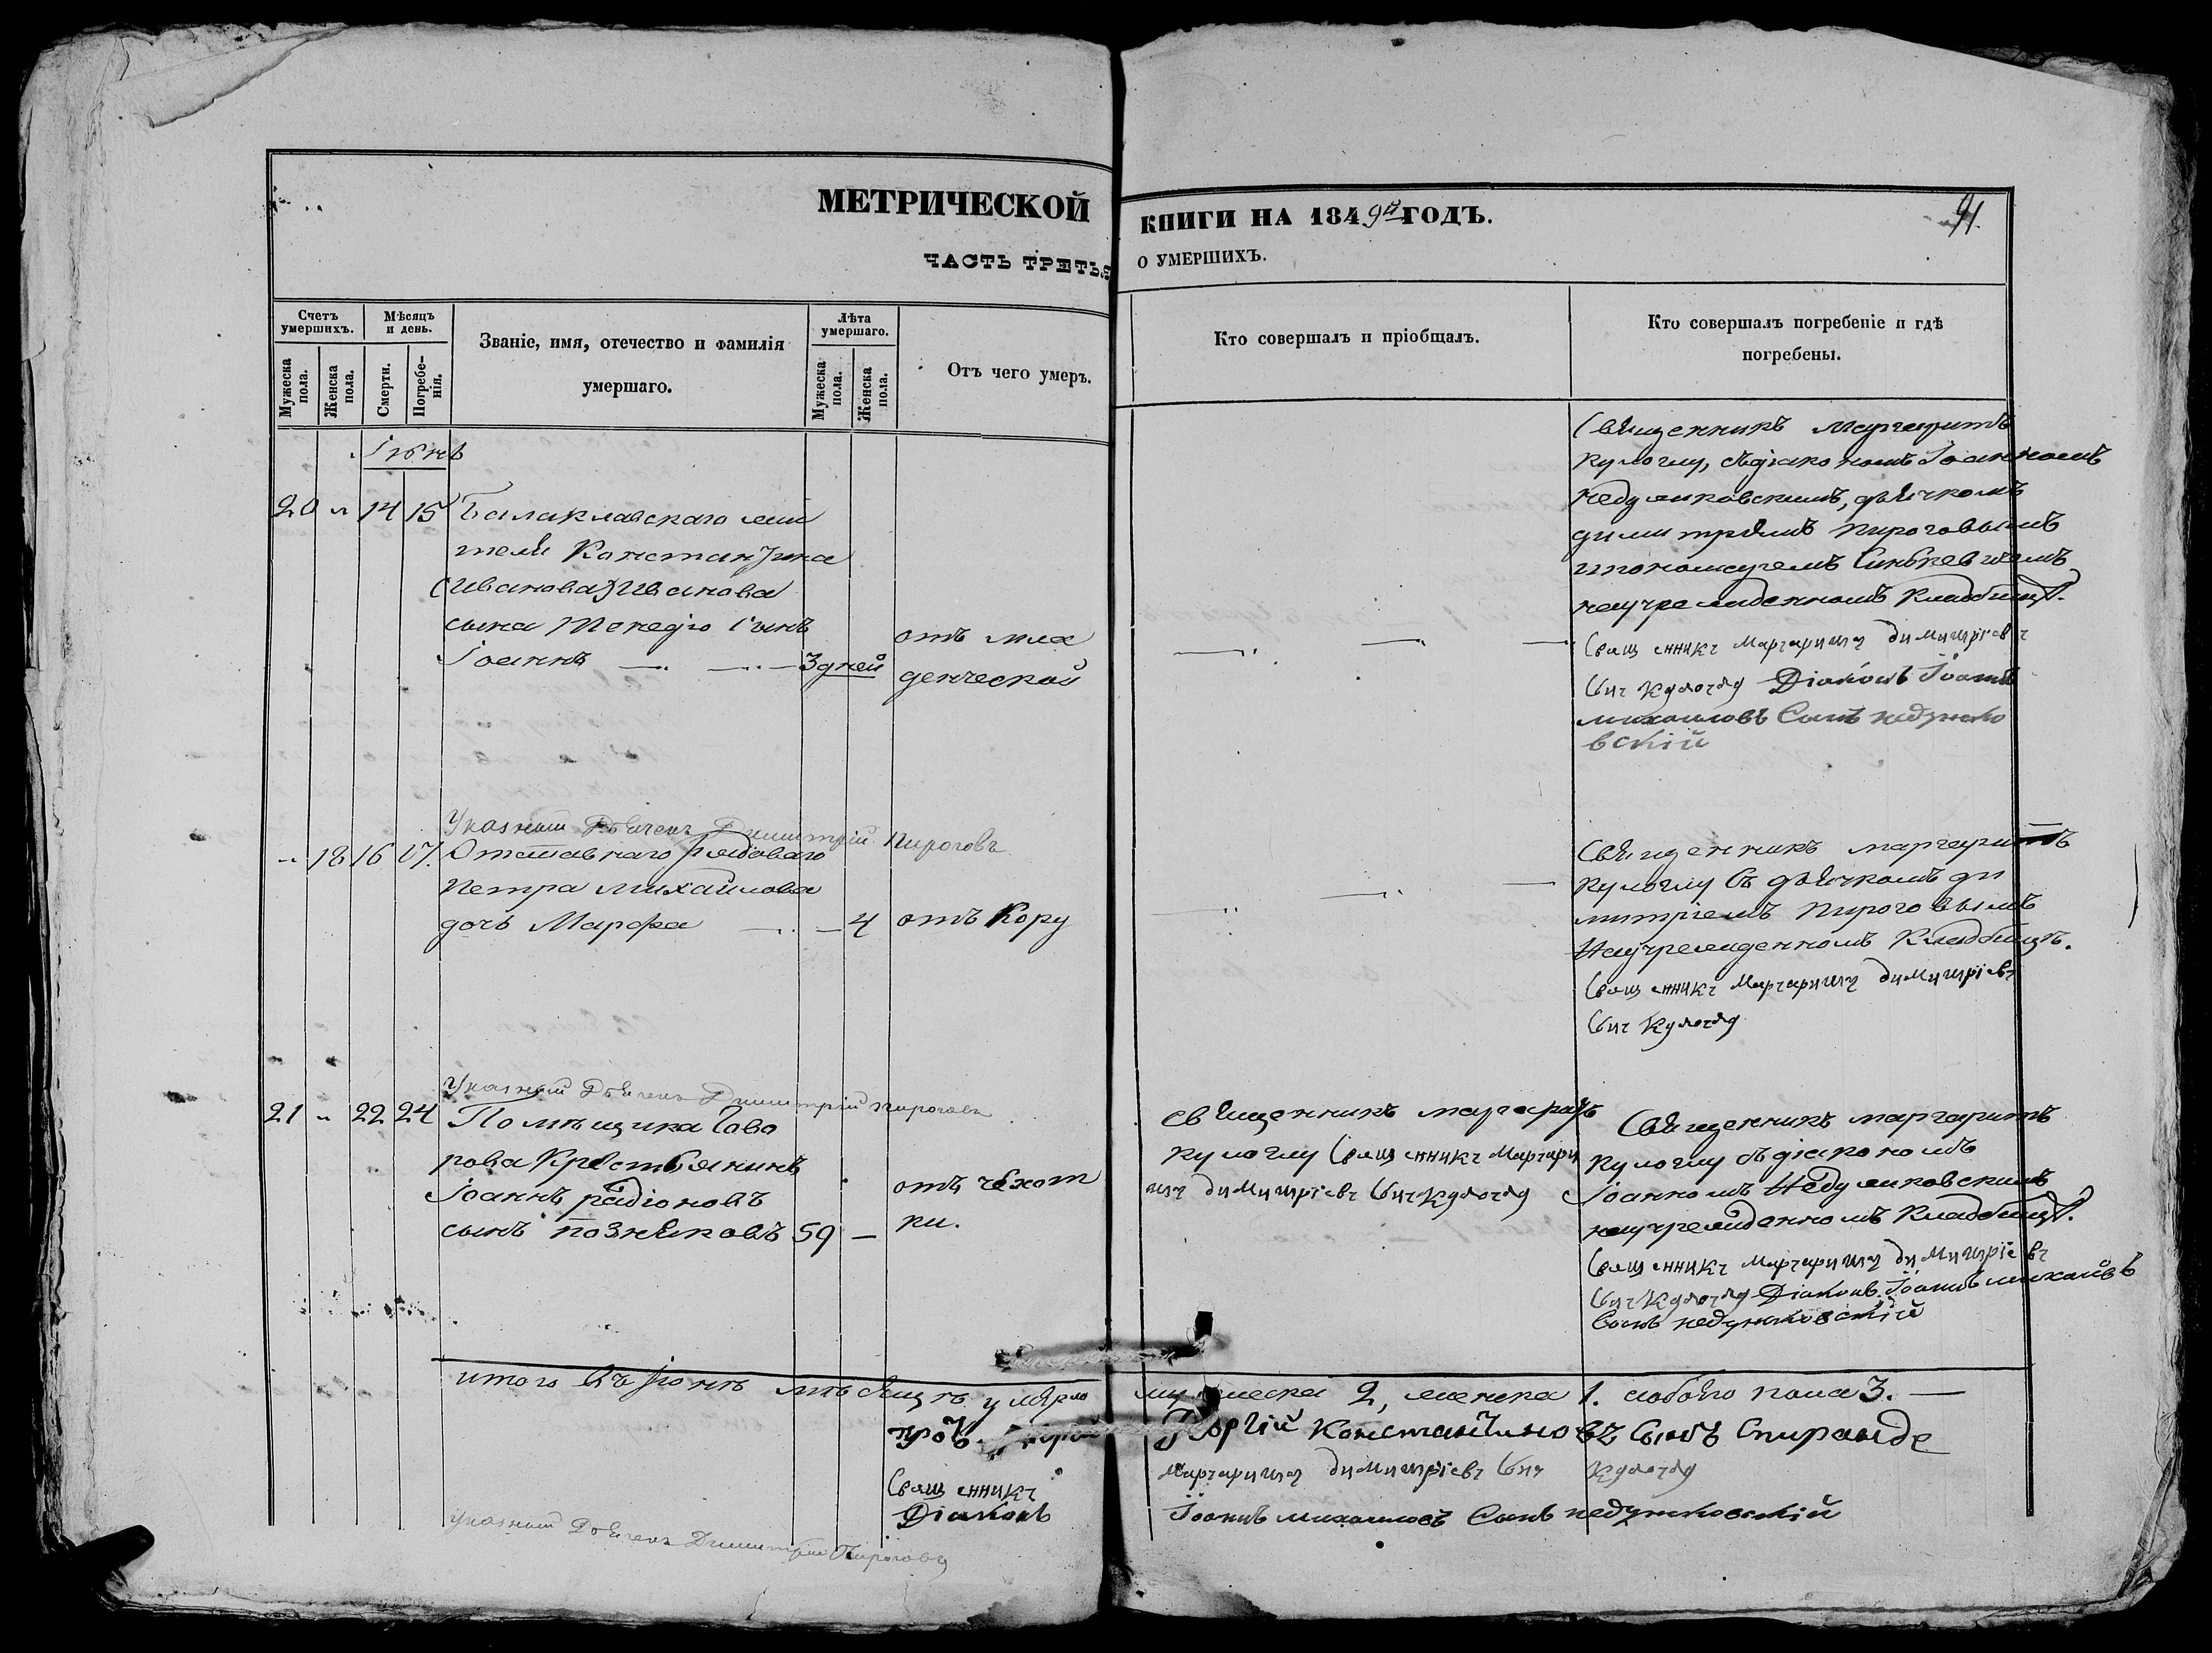 МЕТРИЧЕСКОЙ КНИГИ НА 1849й ГОДЪ.
91.
ЧАСТЬ ТРЕТЬЯ О УМЕРШИХЪ.
Счетъ умершихъ.
Мужеска пола.
Женска пола.
Мѣсяцъ и день.
Смерти.
Погребенія.
Званіе, имя, отечество и фамилія
умершаго.
Лѣта умершаго.
Мужеска пола.
Женска пола.
Отъ чего умеръ.
Кто совершалъ и пріобщалъ.
Кто совершалъ погребеніе и гдѣ
погребены.
Іюнь
20 „ 14 15 Балаклавскаго жи
теля Константина
(Иванова) Иванова
сына Тенедіо сынъ
Іоаннъ — — 3 дней
отъ мла
денческой
Священникъ Маргаритъ
Кулоглу, съ діакономъ Іоанномъ
Недзянковскимъ, дьячкомъ
Димитріемъ Пироговымъ
на учрежденномъ кладбищѣ.
Священникъ Маргаритъ Димитріевъ
сынъ Кулоглу Діаконъ Іоаннъ
Михаиловъ Сынъ Недзянко
вскій
Указный Дьячекъ Димитрій Пироговъ
„ 18 16 17. Отставнаго рядоваго
Петра Михайлова
дочь Марфа — — 4
отъ кору
Священникъ Маргаритъ
Кулоглу съ дьячкомъ Ди
митріемъ Пироговымъ
на учрежденномъ кладбищѣ.
Священникъ Маргаритъ Димитріевъ
сынъ Кулоглу
Указный Дьячекъ Димитрій Пироговъ
21 „ 22 24 Помѣщика
Крестьянинъ
Іоаннъ Радіоновъ
сынъ Позняковъ 59 —
отъ чахот
ки.
Священникъ Маргаритъ
Кулоглу Священникъ Маргари
тъ Димитріевъ сынъ Кулоглу
Священникъ Маргаритъ
Кулоглу съ діакономъ
Іоанномъ Недзянковскимъ
на учрежденномъ кладбищѣ.
Священникъ Маргаритъ Димитріевъ
сынъ Кулоглу Діаконъ Іоаннъ Михаиловъ
Сынъ Недзянковскій
итого въ Іюнѣ мѣсяцѣ умерло мужеска 2, женска 1. а обоего пола 3. —
Георгій Константиновъ Сынъ Спиранде
Священникъ Маргаритъ Димитріевъ сынъ Кулоглу
Діаконъ Іоаннъ Михаиловъ Сынъ Недзянковскій
Указный Дьячекъ Димитрій Пироговъ